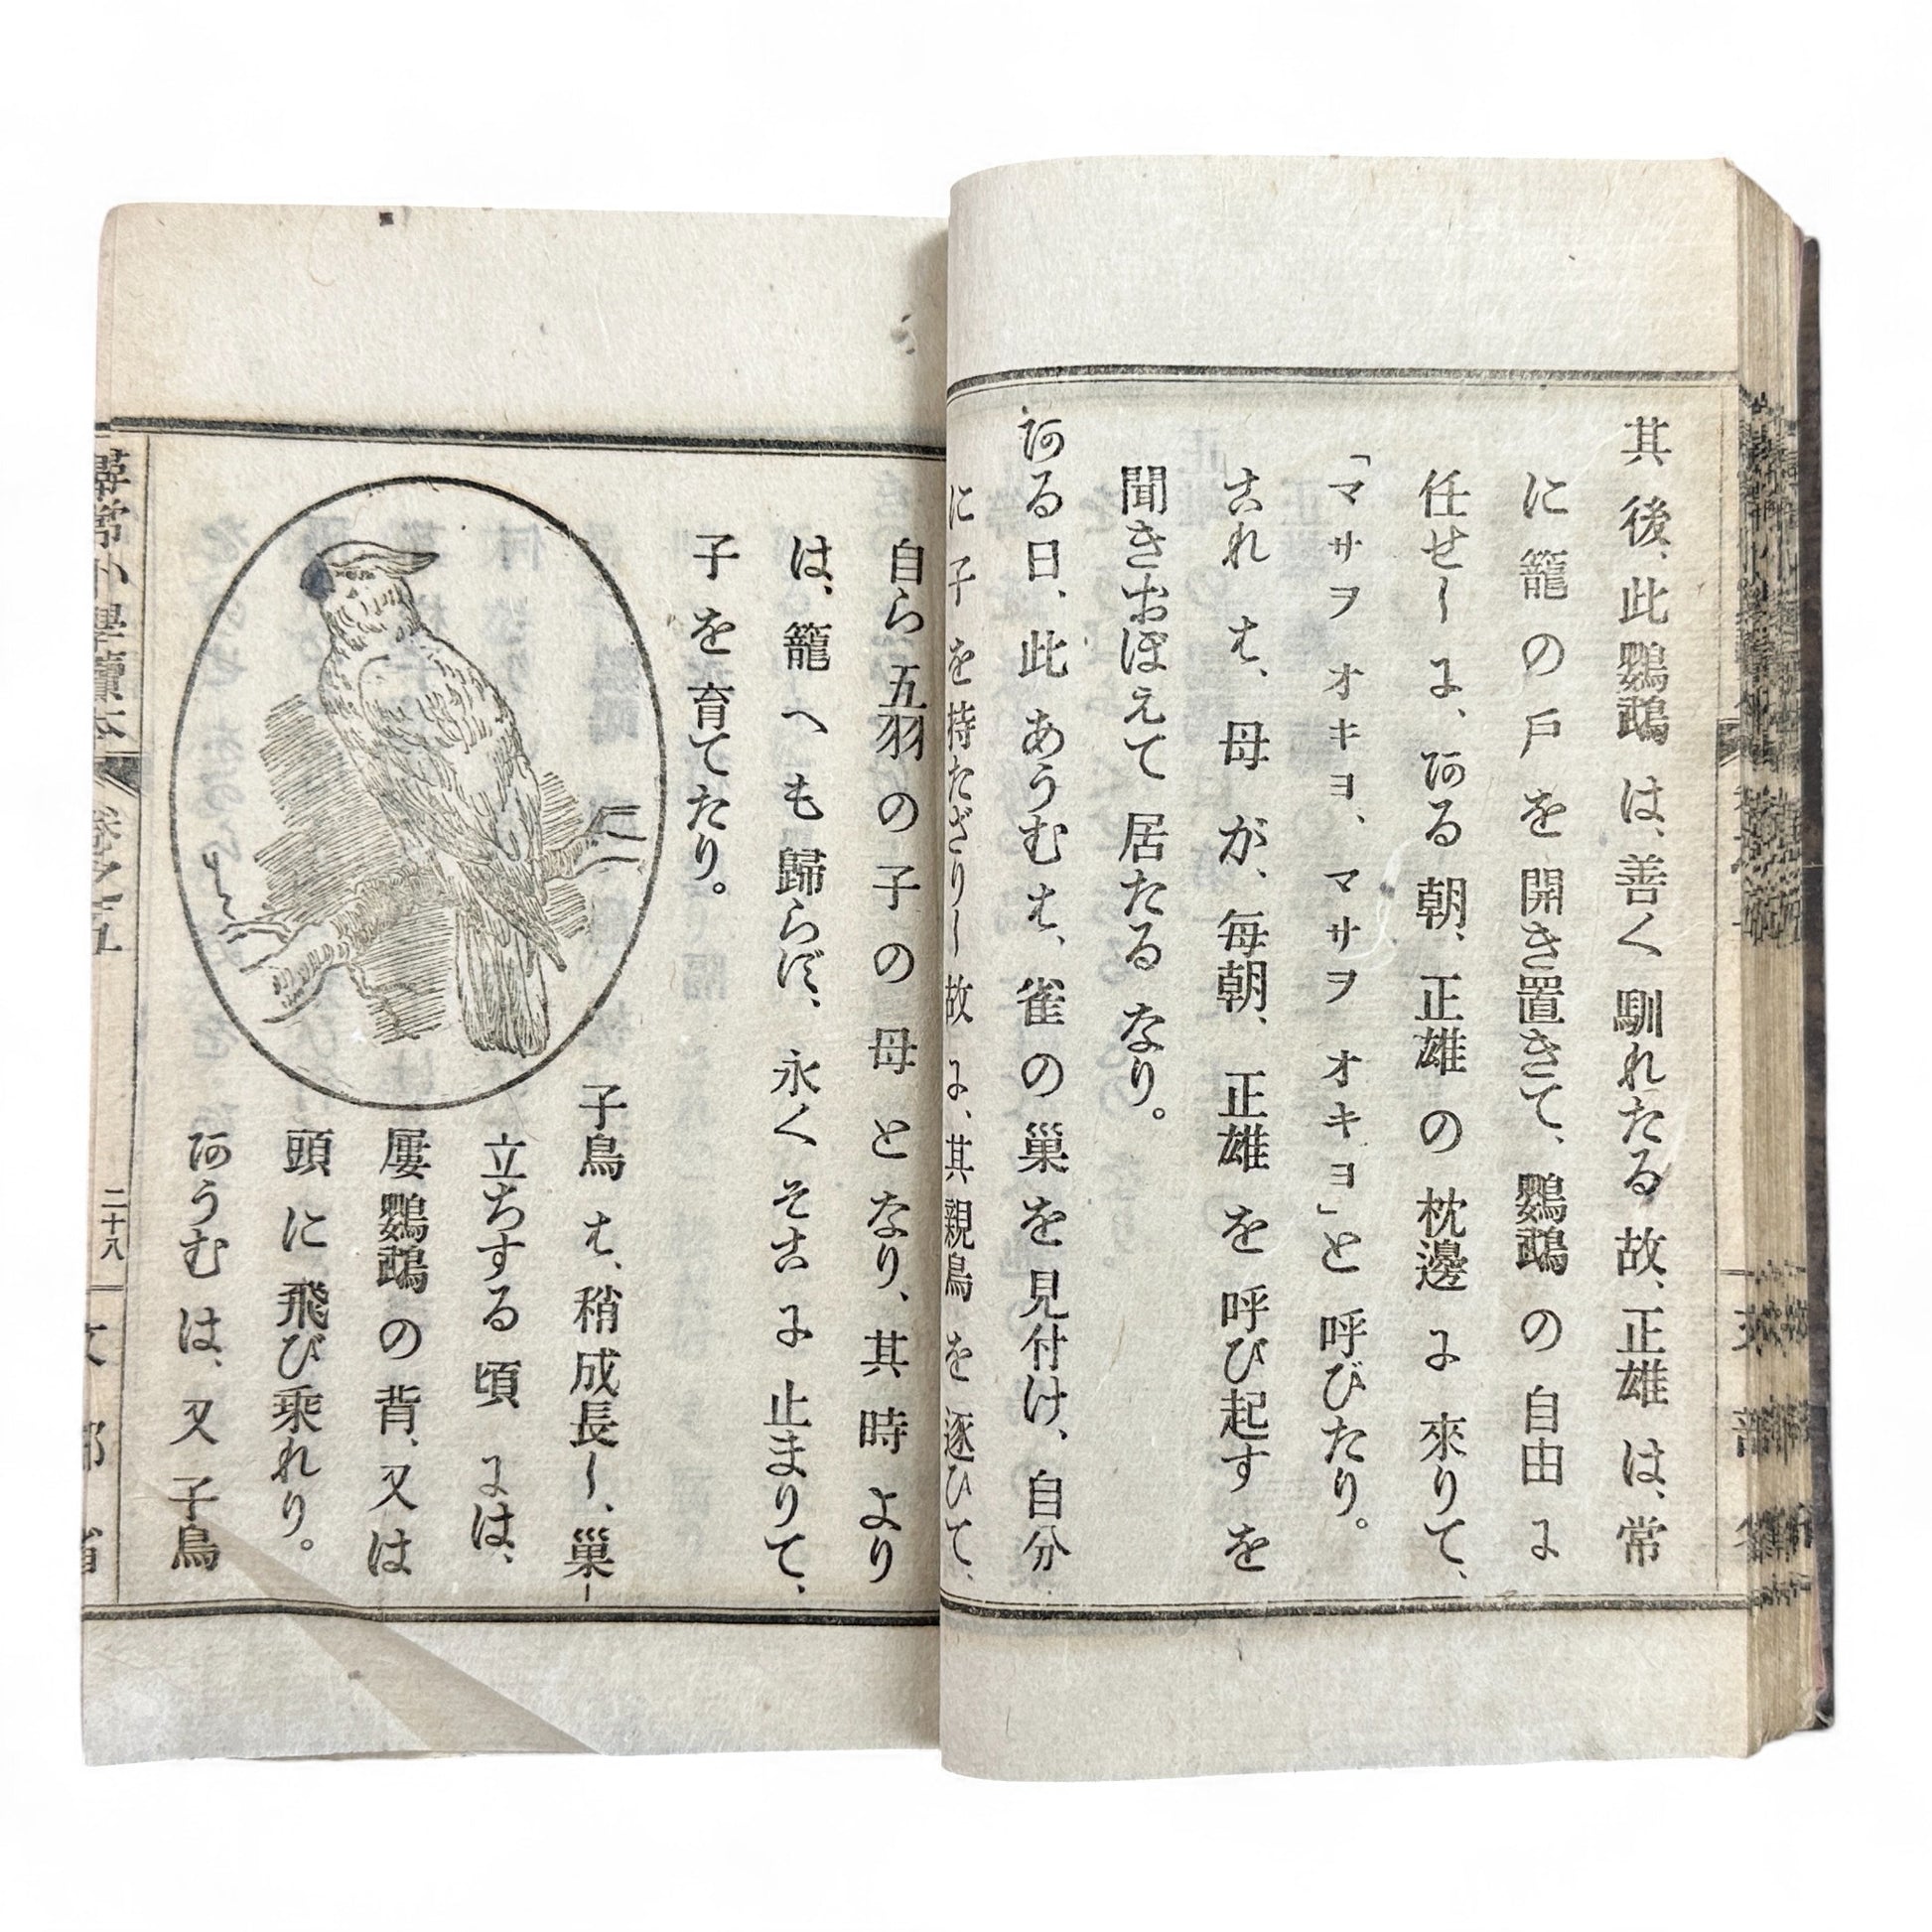 其後、此鸚鵡は、善く馴れたる故、正雄は、常
に籠の戸を開き置きて、鸚鵡の自由に
任せしに、ある朝、正雄の枕邊に來りて、
「マサヲオキヨ、マサヲオキヨ」と呼びたり。
これは、母が、毎朝、正雄を呼び起すを
聞きおぼえて居たるなり。
ある日、此あうむは、雀の巣を見付け、自分
に子を持たざりし故に、其親鳥を逐ひて、
自ら五羽の子の母となり、其時より
は、籠へも歸らず、永くそこに止まりて、
子を育てたり。
子鳥は、稍成長し、巣
立ちする頃には、
屢鸚鵡の背、又は
頭に飛び乗れり。
あうむは、又子鳥
尋常小學讀本
卷之五
二十八
文部省